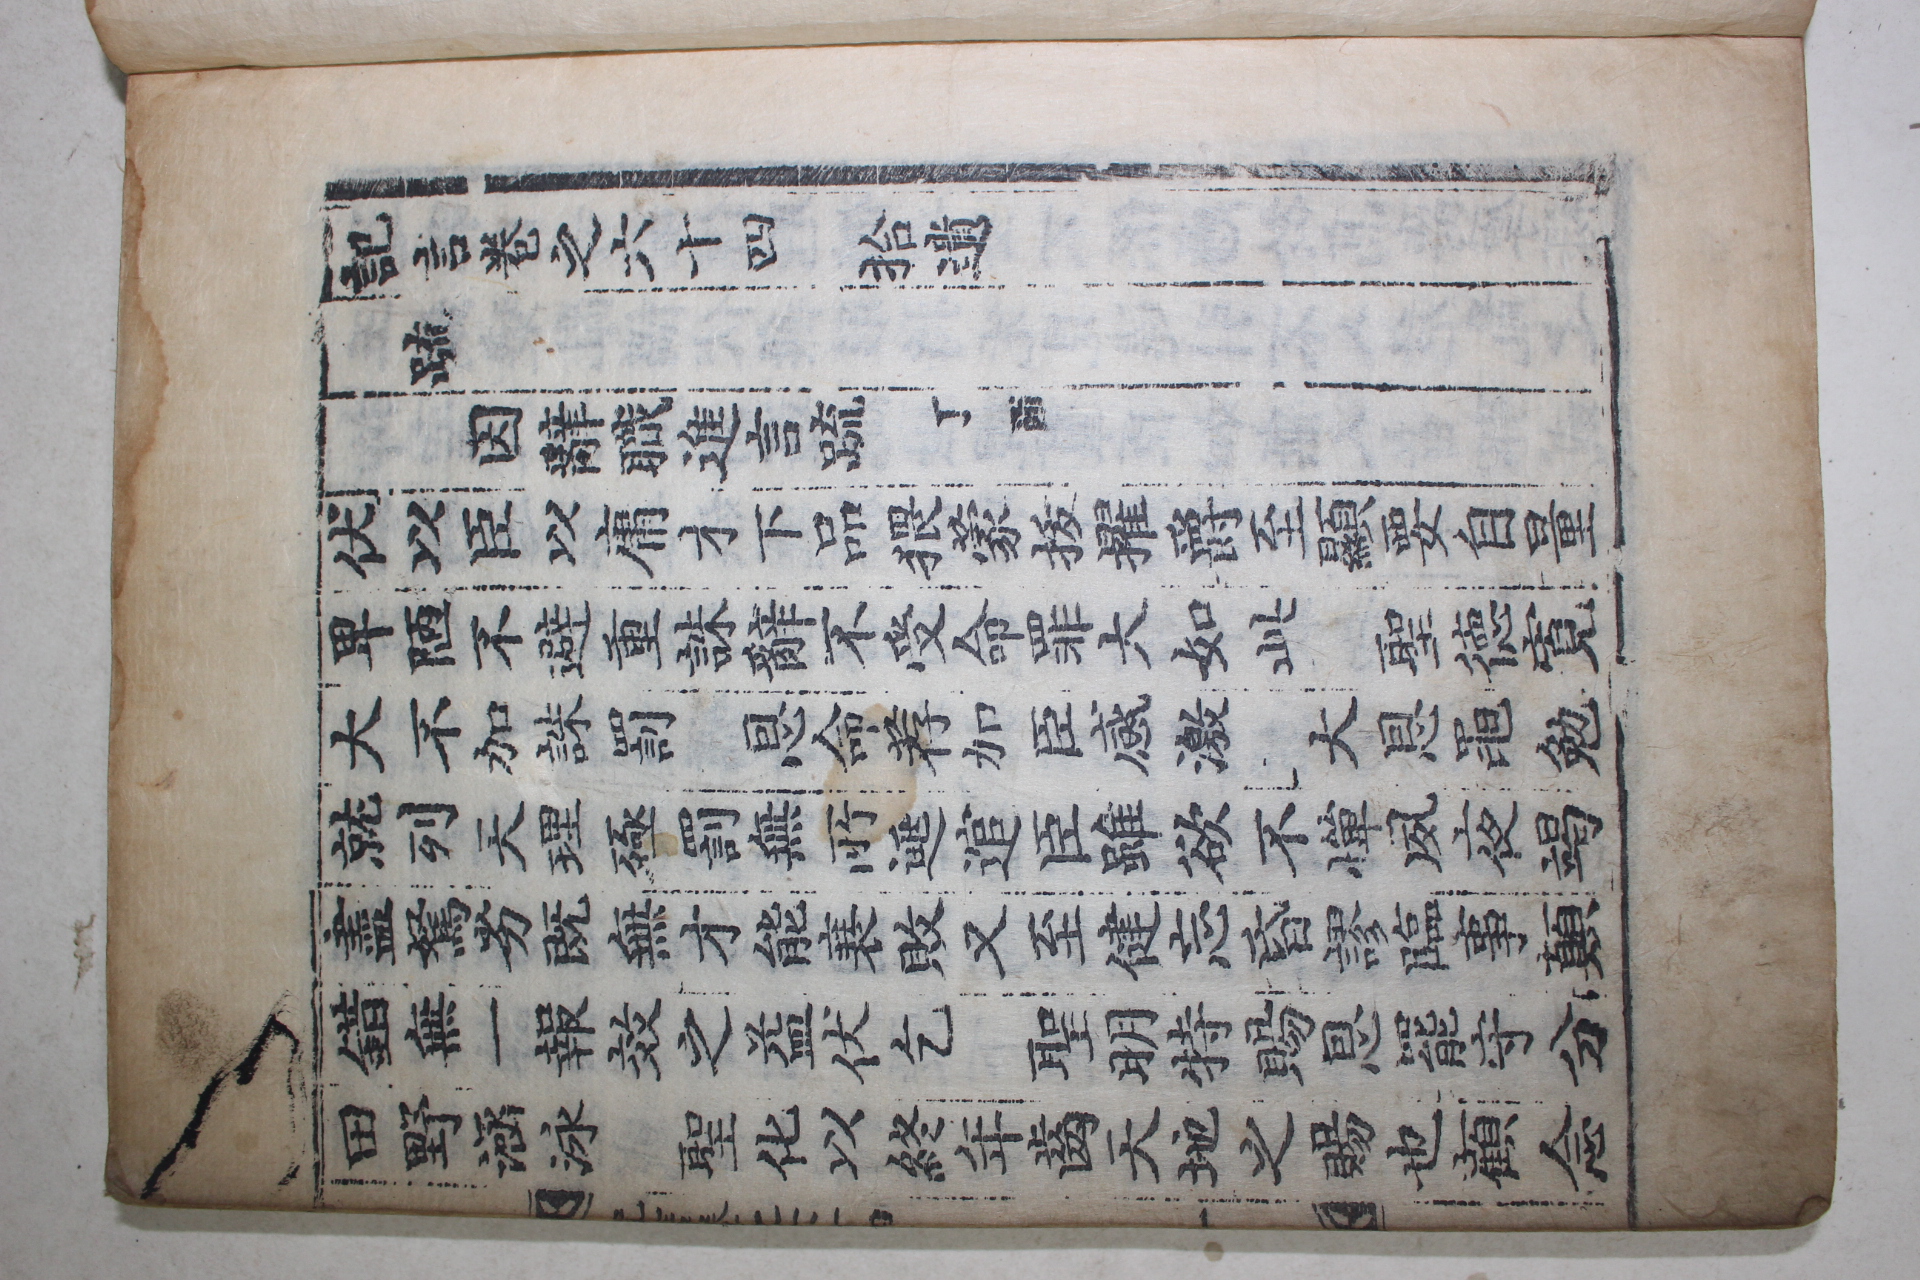 記言卷之六十四　拾遺
疏
因辭職進言疏　丁酉
伏以臣以庸才下品猥蒙拔擢爵至顯要自量
卑陋不避重誅辭不受命罪大如此　聖德寬
大不加誅罰　恩命荐加臣感激　大恩黽勉
就列天理極罰無所逃逭臣雖欲不憚夙夜竭
盡駑劣旣無才能衰敗又至健忘昏謬臨事顚
錯無一報效之益伏乞　聖明特賜恩罷守分
田野涵泳　聖化以終年齒天地之賜也顧念